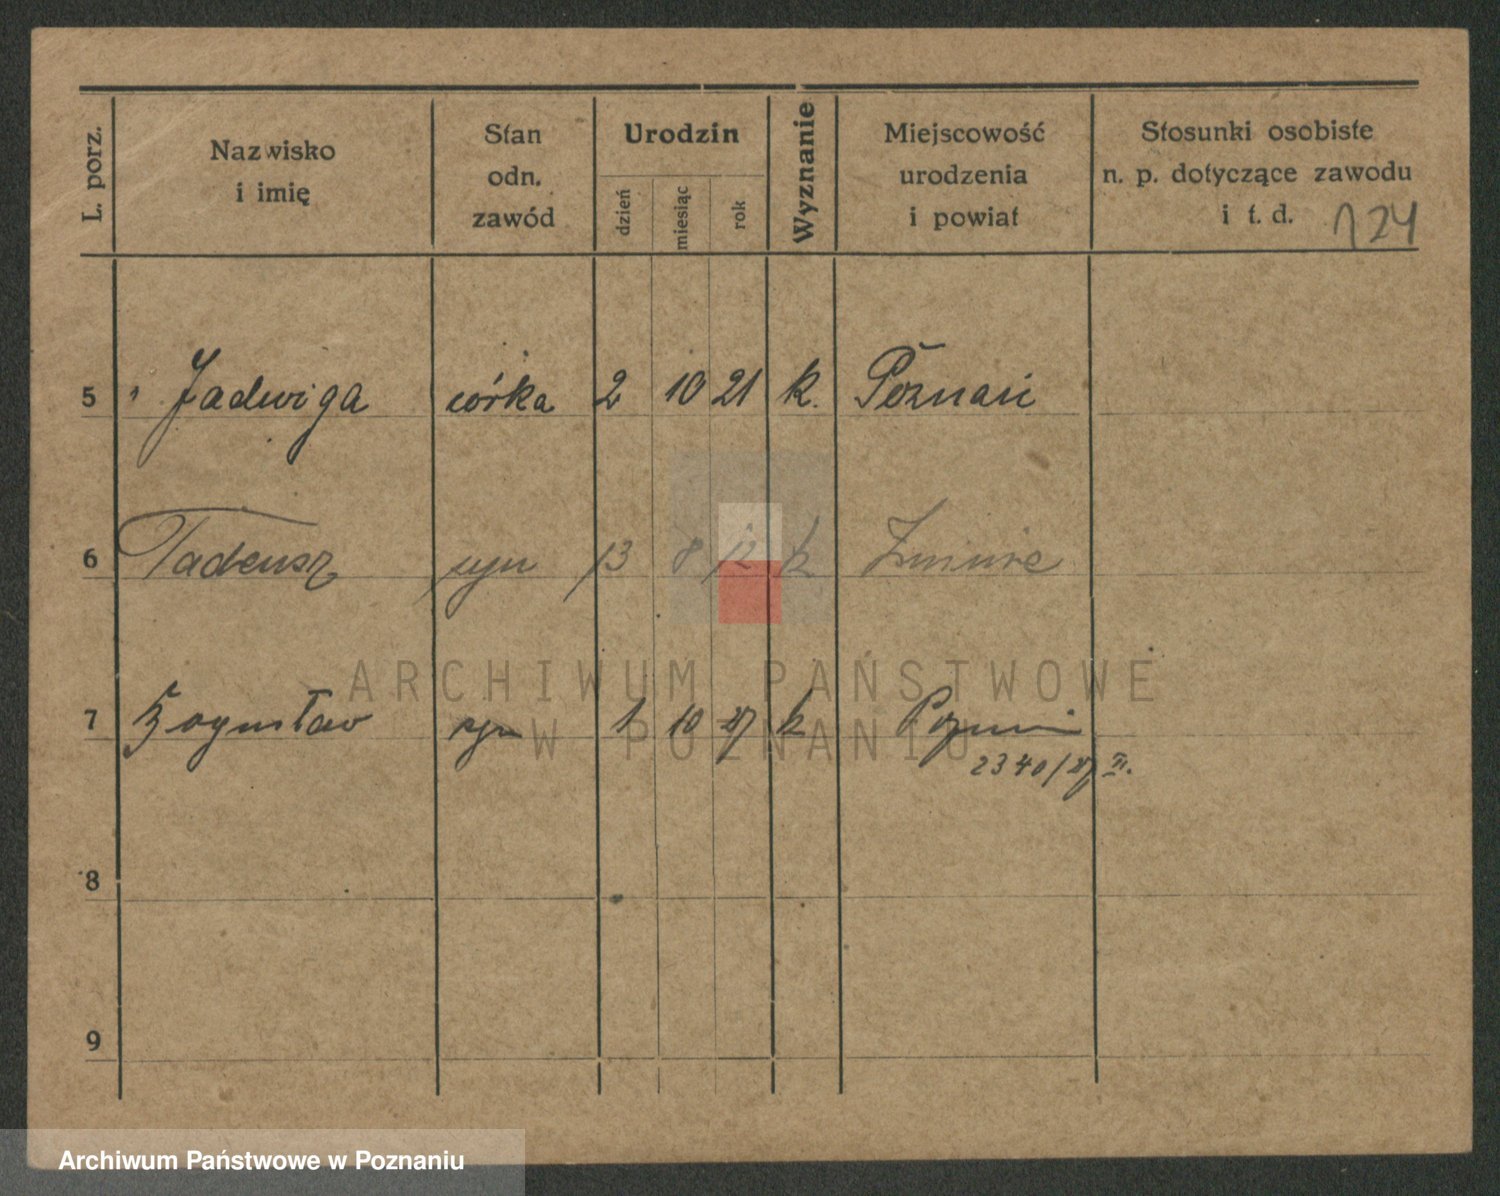 L. porz.
Nazwisko
i imię
Stan
odn.
zawód
Urodzin
dzień
miesiąc
rok
Wyznanie
Miejscowość
urodzenia
i powiat
Stosunki osobiste
n. p. dotyczące zawodu
i t. d.
124
5 " Jadwiga córka 2 10 21 k. Poznań
6 Tadeusz syn 13 8 12 k
7 Bogusław syn 1 10 27 k Poznań
2340/27 II.
8
9
ARCHIWUM PAŃSTWOWE
W POZNANIU
Archiwum Państwowe w Poznaniu